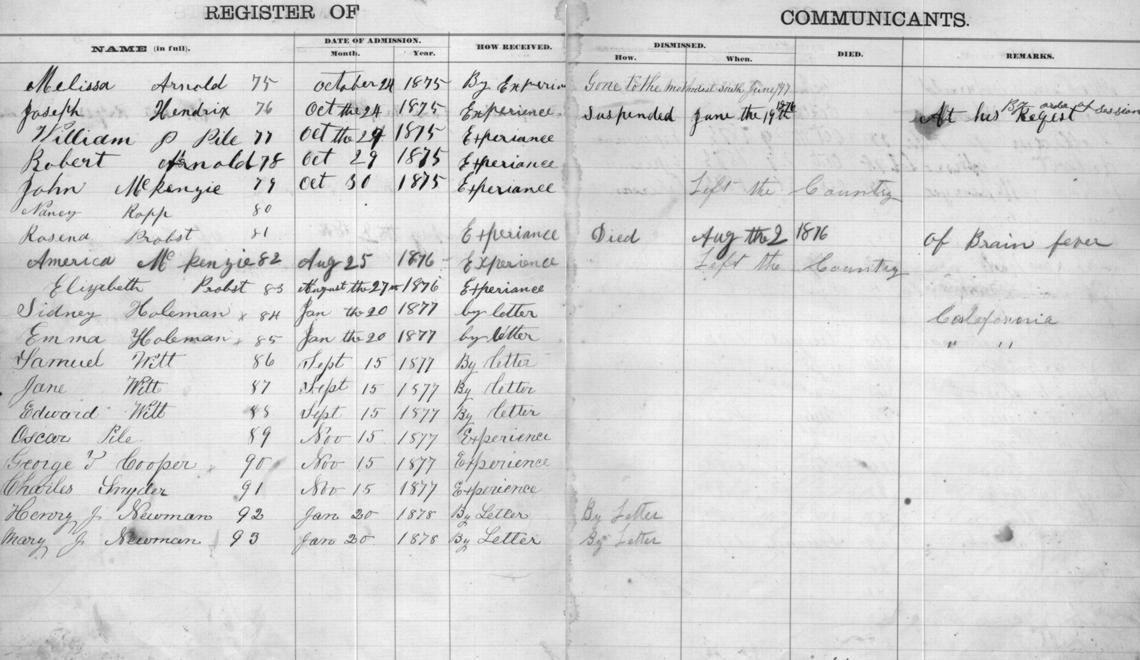 REGISTER OF COMMUNICANTS.
NAME (in full). DATE OF ADMISSION. HOW RECEIVED. DISMISSED. DIED. REMARKS.
Month. Year. How. When.
Melissa Arnold 75 october 24 1875 By Experien Gone to the methodist south June
Joseph Hendrix 76 Oct the 24 1875 Experience Suspended June the 19th 1876 At his Reqest By order of Session
William P Pile 77 Oct the 24 1875 Experiance
Robert Arnold 78 Oct 29 1875 Experiance
John McKenzie 79 Oct 30 1875 Experiance Left the Country
Nancy Ropp 80
Rosena Probst 81 Experiance Died Aug the 2 1876 of Brain fever
America McKenzie 82 Aug 25 1876 Experience Left the Country
Elizebeth Probst 83 August the 27 1876 Experiance
Sidney Holeman x 84 Jan the 20 1877 by letter California
Emma Holeman x 85 Jan the 20 1877 by letter " "
Samuel Witt 86 Sept 15 1877 By letter
Jane Witt 87 Sept 15 1877 By letter
Edward Witt 88 Sept 15 1877 By letter
Oscar Pile 89 Nov 15 1877 Experience
George T Cooper x 90 Nov 15 1877 Experience
Charles Snyder 91 Nov 15 1877 Experience
Henry J Newman 92 Jan 20 1878 By Letter By Letter
Mary J Newman 93 Jan 20 1878 By Letter By Letter